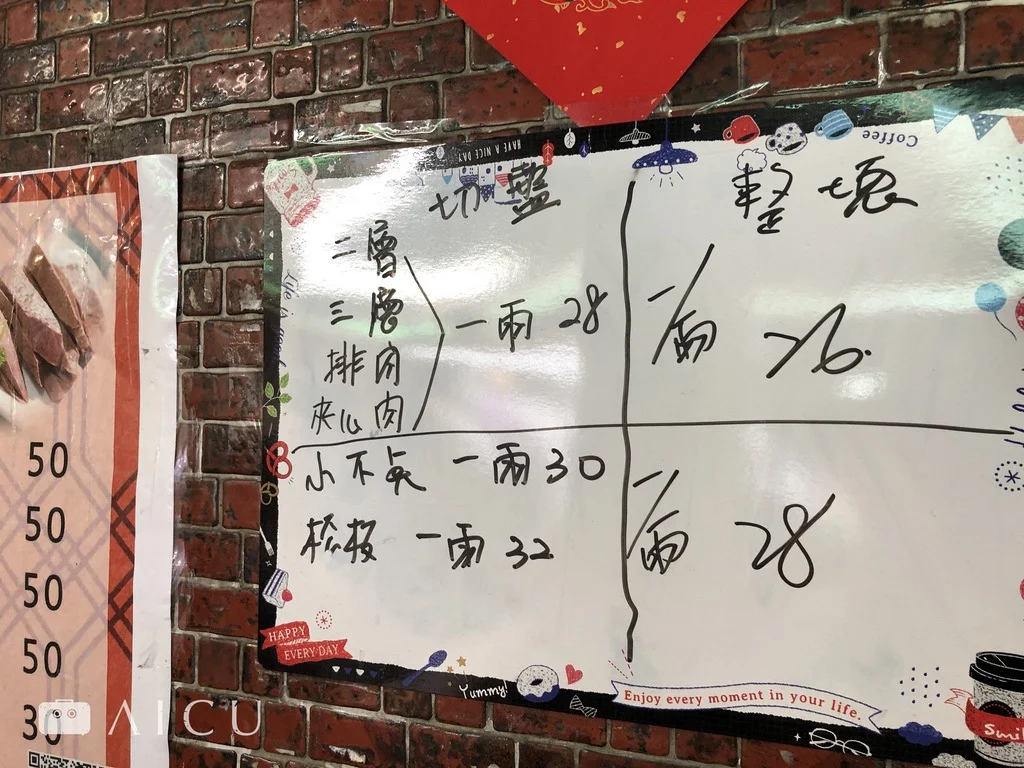 50
50
50
50
30
HAVE A NICE DAY
Coffee
切盤
整塊
二層
三層
排肉
夾心肉
一兩 28
一兩 26.
小不点 一兩 30
松板 一兩 32
一兩 28
HAPPY
EVERY DAY
Yummy!
Enjoy every moment in your life.
AICU